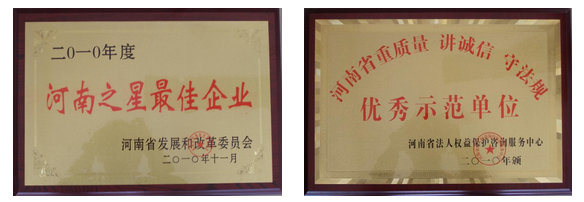 二〇一〇年度
河南之星最佳企业
河南省发展和改革委员会
二〇一〇年十一月
河南省重质量 讲诚信 守法规
优秀示范单位
河南省法人权益保护咨询服务中心
二〇一〇年颁